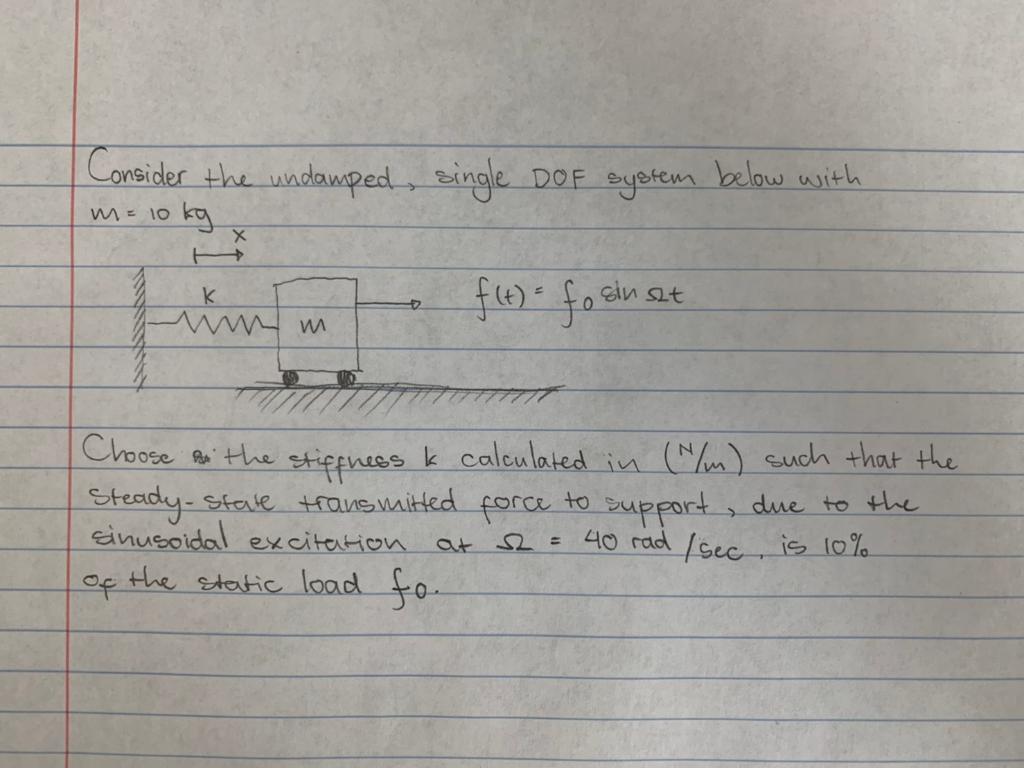 Consider the undamped, single DOF system below with
m = 10 kg
x
k
m
f(t) = f0 sin Ωt
Choose the stiffness k calculated in (N/m) such that the
steady-state transmitted force to support, due to the
sinusoidal excitation at Ω = 40 rad/sec. is 10%
of the static load f0.